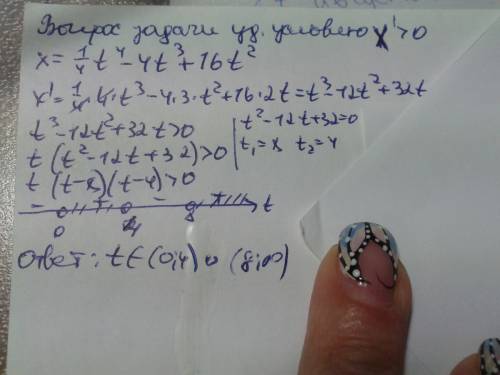 Вопрос задачи уд. условию x'>0
x = 1/4 t⁴ - 4t³ + 16t²
x' = 1/4 · 4 · t³ - 4·3·t² + 16·2t = t³ - 12t² + 32t
t³ - 12t² + 32t > 0
t (t² - 12t + 32) > 0 | t² - 12t + 32 = 0
t (t - 8)(t - 4) > 0 | t₁ = 8 t₂ = 4
- + - 8 + t
0 4
Ответ: t ∈ (0;4) ∪ (8;∞)